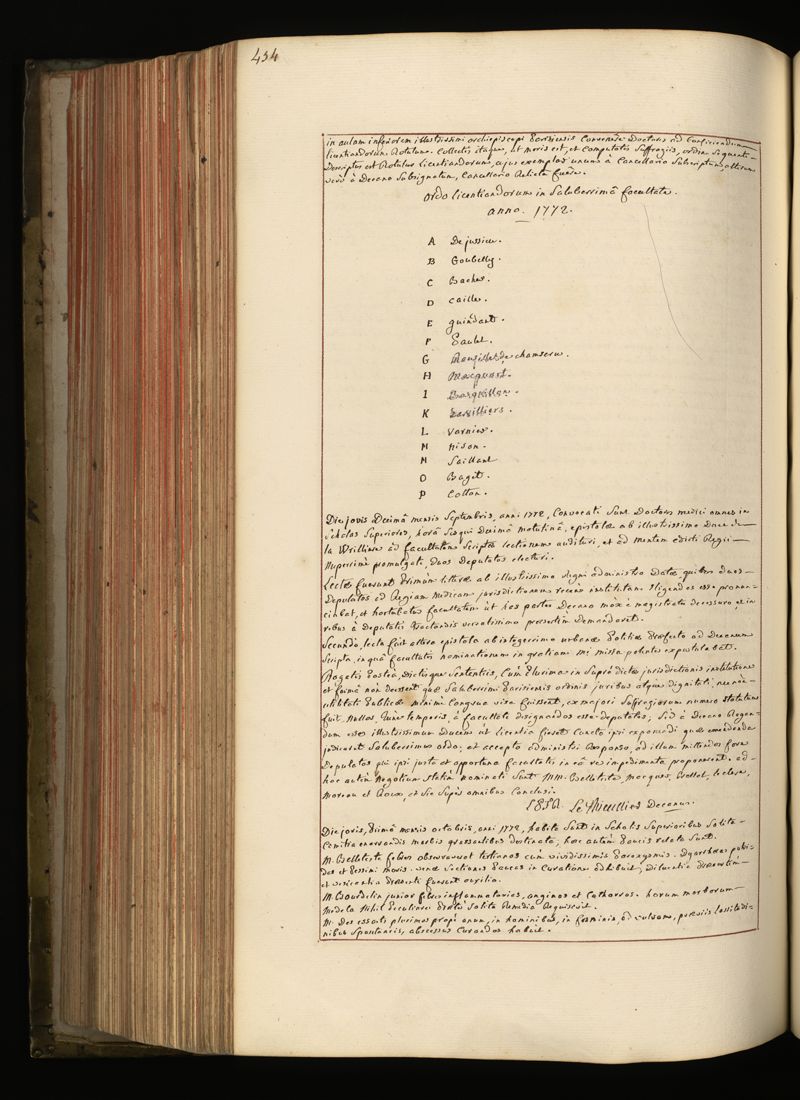 434
in aulam inferiorem illustrissimi archiepiscopi Parisiensis Convenere Doctores ad Conficiendum
licentiandorum Rotulum. Collectis itaque, ut moris est, et Computatis Suffragiis, ordine Sequenti
Descriptus est Rotulus licentiandorum, cujus exemplar unum à Cancellario Subscriptum, alterum
vero à Decano Subsignatum, Cancellario Relicta fuere.
Ordo licentiandorum in Saluberrimâ facultate.
anno. 1772.
A De jussieu.
B Goubelly.
C Bacher.
D Caille.
E guindant.
F Paulet.
G de chamseru.
H Macquart.
I Bosquillon.
K
L Varnier.
M
N Saillant
O Baget.
P Cotton.
Die jovis Decimâ mensis Septembris, anni 1772, Convocati Sunt Doctores medici omnes in
Scholas Superiores, horâ Sesqui Decimâ matutinâ, epistolæ ab illustrissimo Duce de
la Vrilliere ad facultatem Scriptæ lectionem audituri, et ad mentem edicti Regii
Nuperrimè promulgati, Duos Deputatos electuri.
Lectæ fuerunt Primùm litteræ ab illustrissimo Regni administro Datæ quibus duos
Deputatos ad Regiam Medicam jurisdictionem recens institutam eligendos esse pronun-
ciabat, et hortabatur facultatem ut has partes Decano mox è magistratu decessuro, et in
rebus à Deputatis tractandis versatissimo præsertim Demandaret.
Secundò, lecta fuit altera epistola ab integerrimo urbanæ Politiæ Præfecto ad Decanum
Scripta, in quâ facultatis nominationem in gratiam sui missa potentis expostulabat.
Rogatis Posteà, Dictisque Sententiis, Cum Plurima in Supra dictæ jurisdictionis institutione
et formâ non deessent quæ Saluberrimi Parisiensis ordinis juribus atque dignitati, nec non
utilitati Publicæ minimè Congrua visa fuissent, ex majori Suffragiorum numero statutum
fuit Nullos, tunc temporis, à facultate designandos esse Deputatos, Sed à Decano Rogan-
dum esse illustrissimum Ducem ut licentia fieret Cuncta ipsi exponendi quæ emendanda
judicaret Saluberrimus ordo; et accepto administri Responso, ad illum mittendos fore
Deputatos qui ipsi justa et opportuna facultatis in eâ re impedimenta proponerent. ad
hoc autem Negotium Statim nominati Sunt MM. Belleteste, Macquer, Bellot, leclerc,
Moreau et Roux, et Sic Supra omnibus Conclusi.
L. P. A. R. Le Thieullier Decanus.
Die jovis, Primâ mensis octobris, anni 1772, habita Sunt in Scholis Superioribus Solita
Comitia enarrandis morbis grassantibus destinata; hæc autem Paucis relata Sunt.
M. Belleteste febres observaverat tertianas cum vividissimis Paroxysmis. Dyarrhæas putri-
das et Pessimi moris. venæ Sectiones Paucas in Curatione adhibuit; Diluentia præsertim
et vesicantia præsenti fuerunt auxilio.
M. Bourdelin junior febres inflammatorias, anginas et Catharros. horum morborum
Medela Nihil Peculiare Præter Solita Remedia Requisivit.
M. Des essartz plurimos propè anum, in hominibus, in fœminis, ad vulvam, præviis lassitudi-
nibus Spontaneis, abscessus Curandos habuit.